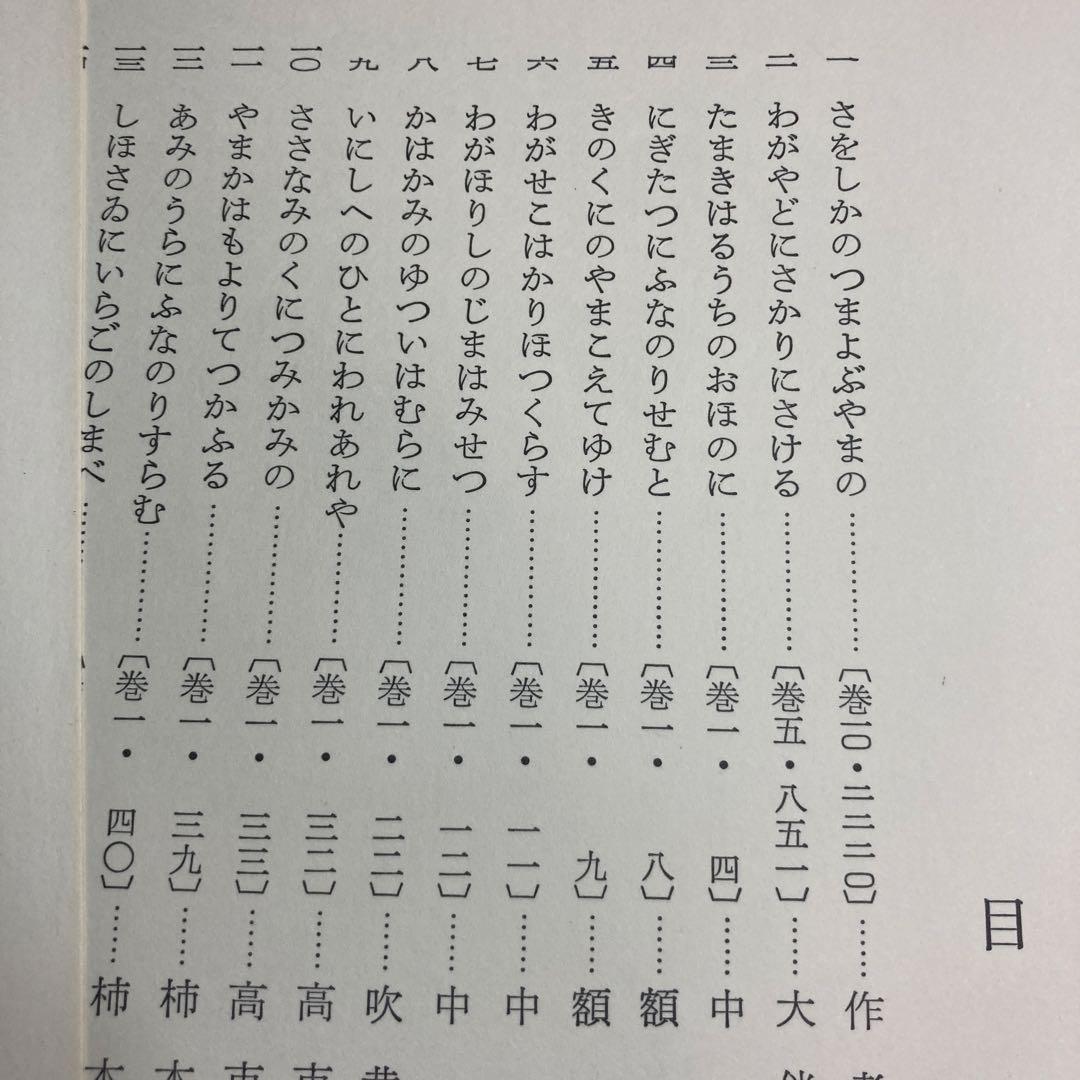 目
一 さをしかのつまよぶやまの……………〔巻一〇・二二二〇〕……作
二 わがやどにさかりにさける……………〔巻五・八五一〕……大
三 たまきはるうちのおほのに……………〔巻一・四〕……中
四 にぎたつにふなのりせむと……………〔巻一・八〕……額
五 きのくにのやまこえてゆけ……………〔巻一・九〕……額
六 わがせこはかりほつくらす……………〔巻一・一一〕……中
七 わがほりしのじまはみせつ……………〔巻一・一二〕……中
八 かはかみのゆついはむらに……………〔巻一・二二〕……吹
九 いにしへのひとにわれあれや…………〔巻一・三二〕……高
一〇 ささなみのくにつみかみの……………〔巻一・三三〕……高
一一 やまかはもよりてつかふる……………〔巻一・三九〕……柿本
一二 あみのうらにふなのりすらむ…………〔巻一・四〇〕……柿本
一三 しほさゐにいらごのしまべ……